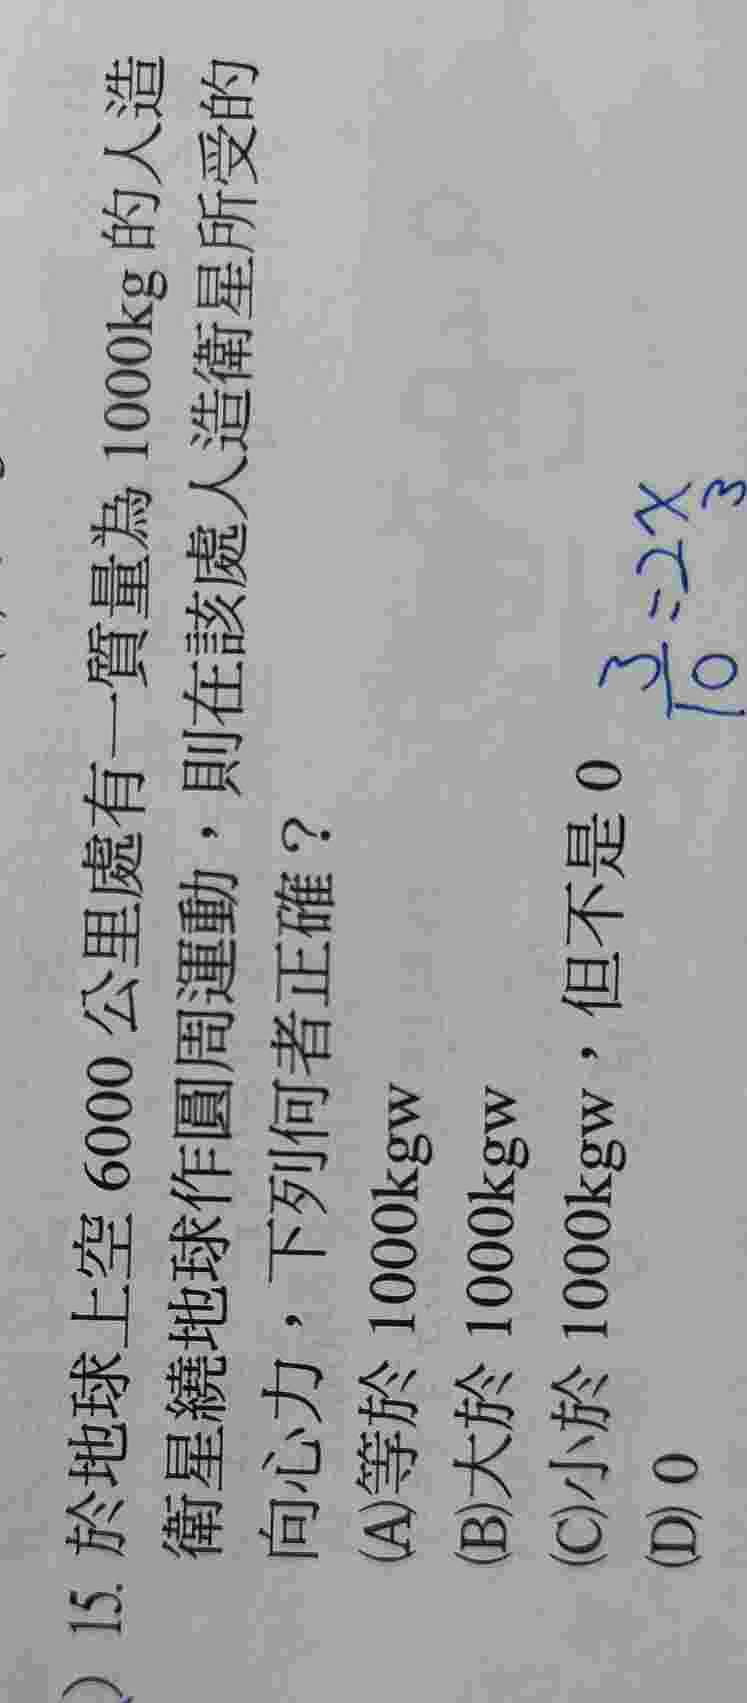 ) 15. 於地球上空 6000 公里處有一質量為 1000kg 的人造
衛星繞地球作圓周運動，則在該處人造衛星所受的
向心力，下列何者正確？
(A)等於 1000kgw
(B)大於 1000kgw
(C)小於 1000kgw，但不是 0
(D) 0
3/10 = 2x
3